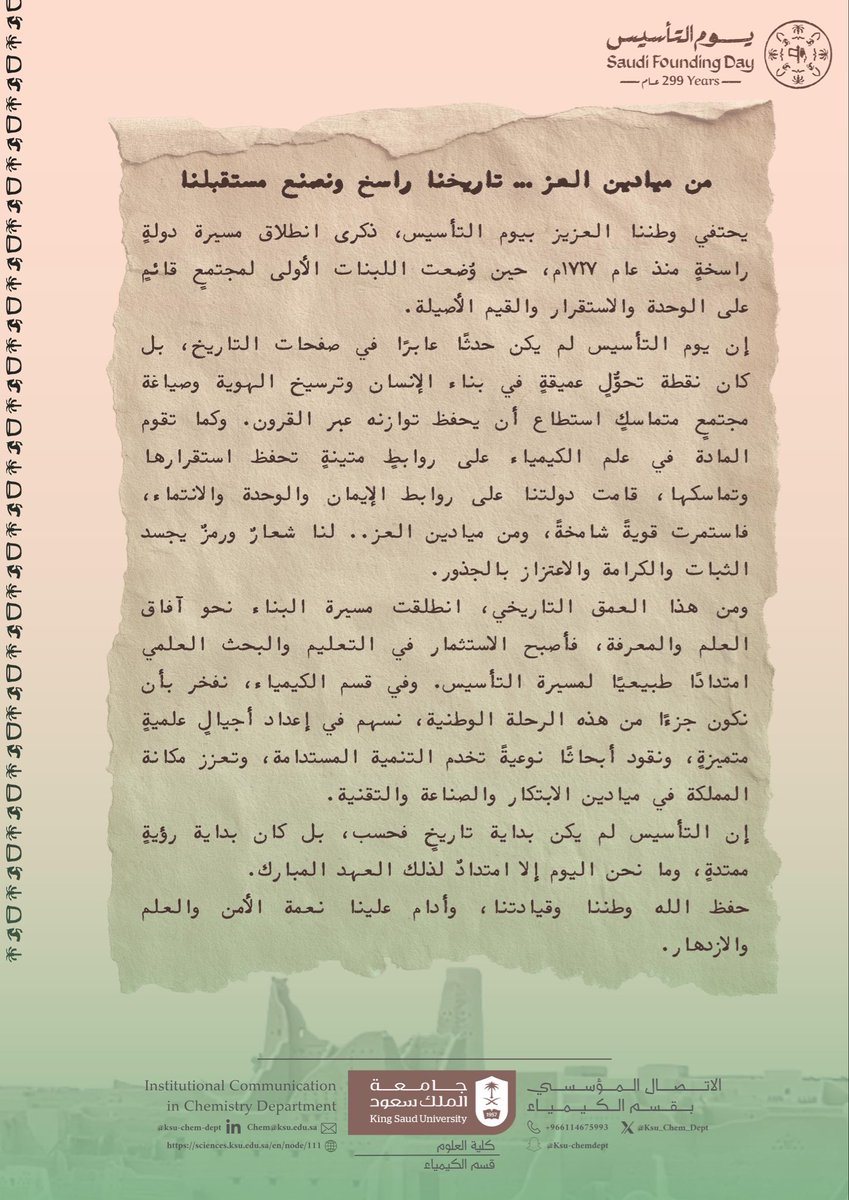 يوم التأسيس
Saudi Founding Day
299 Years عام
من ميادين العز ... تاريخنا راسخ ونصنع مستقبلنا
يحتفي وطننا العزيز بيوم التأسيس، ذكرى انطلاق مسيرة دولةٍ
راسخةٍ منذ عام ١٧٢٧م، حين وُضعت اللبنات الأولى لمجتمعٍ قائمٍ
على الوحدة والاستقرار والقيم الأصيلة.
إن يوم التأسيس لم يكن حدثًا عابرًا في صفحات التاريخ، بل
كان نقطة تحوُّلٍ عميقةٍ في بناء الإنسان وترسيخ الهوية وصياغة
مجتمعٍ متماسكٍ استطاع أن يحفظ توازنه عبر القرون. وكما تقوم
المادة في علم الكيمياء على روابطٍ متينةٍ تحفظ استقرارها
وتماسكها، قامت دولتنا على روابط الإيمان والوحدة والانتماء،
فاستمرت قويةً شامخةً، ومن ميادين العز.. لنا شعارٌ ورمزٌ يجسد
الثبات والكرامة والاعتزاز بالجذور.
ومن هذا العمق التاريخي، انطلقت مسيرة البناء نحو آفاق
العلم والمعرفة، فأصبح الاستثمار في التعليم والبحث العلمي
امتدادًا طبيعيًا لمسيرة التأسيس. وفي قسم الكيمياء، نفخر بأن
نكون جزءًا من هذه الرحلة الوطنية، نسهم في إعداد أجيالٍ علميةٍ
متميزةٍ، ونقود أبحاثًا نوعيةً تخدم التنمية المستدامة، وتعزز مكانة
المملكة في ميادين الابتكار والصناعة والتقنية.
إن التأسيس لم يكن بداية تاريخٍ فحسب، بل كان بداية رؤيةٍ
ممتدةٍ، وما نحن اليوم إلا امتدادٌ لذلك العهد المبارك.
حفظ الله وطننا وقيادتنا، وأدام علينا نعمة الأمن والعلم
والازدهار.
الاتصال المؤسسي
بقسم الكيمياء
@Ksu_Chem_Dept
+966114675993
@Ksu-chemdept
جامعة
الملك سعود
King Saud University
1957
كلية العلوم
قسم الكيمياء
Institutional Communication
in Chemistry Department
@ksu-chem-dept
Chem@ksu.edu.sa
https://sciences.ksu.edu.sa/en/node/111